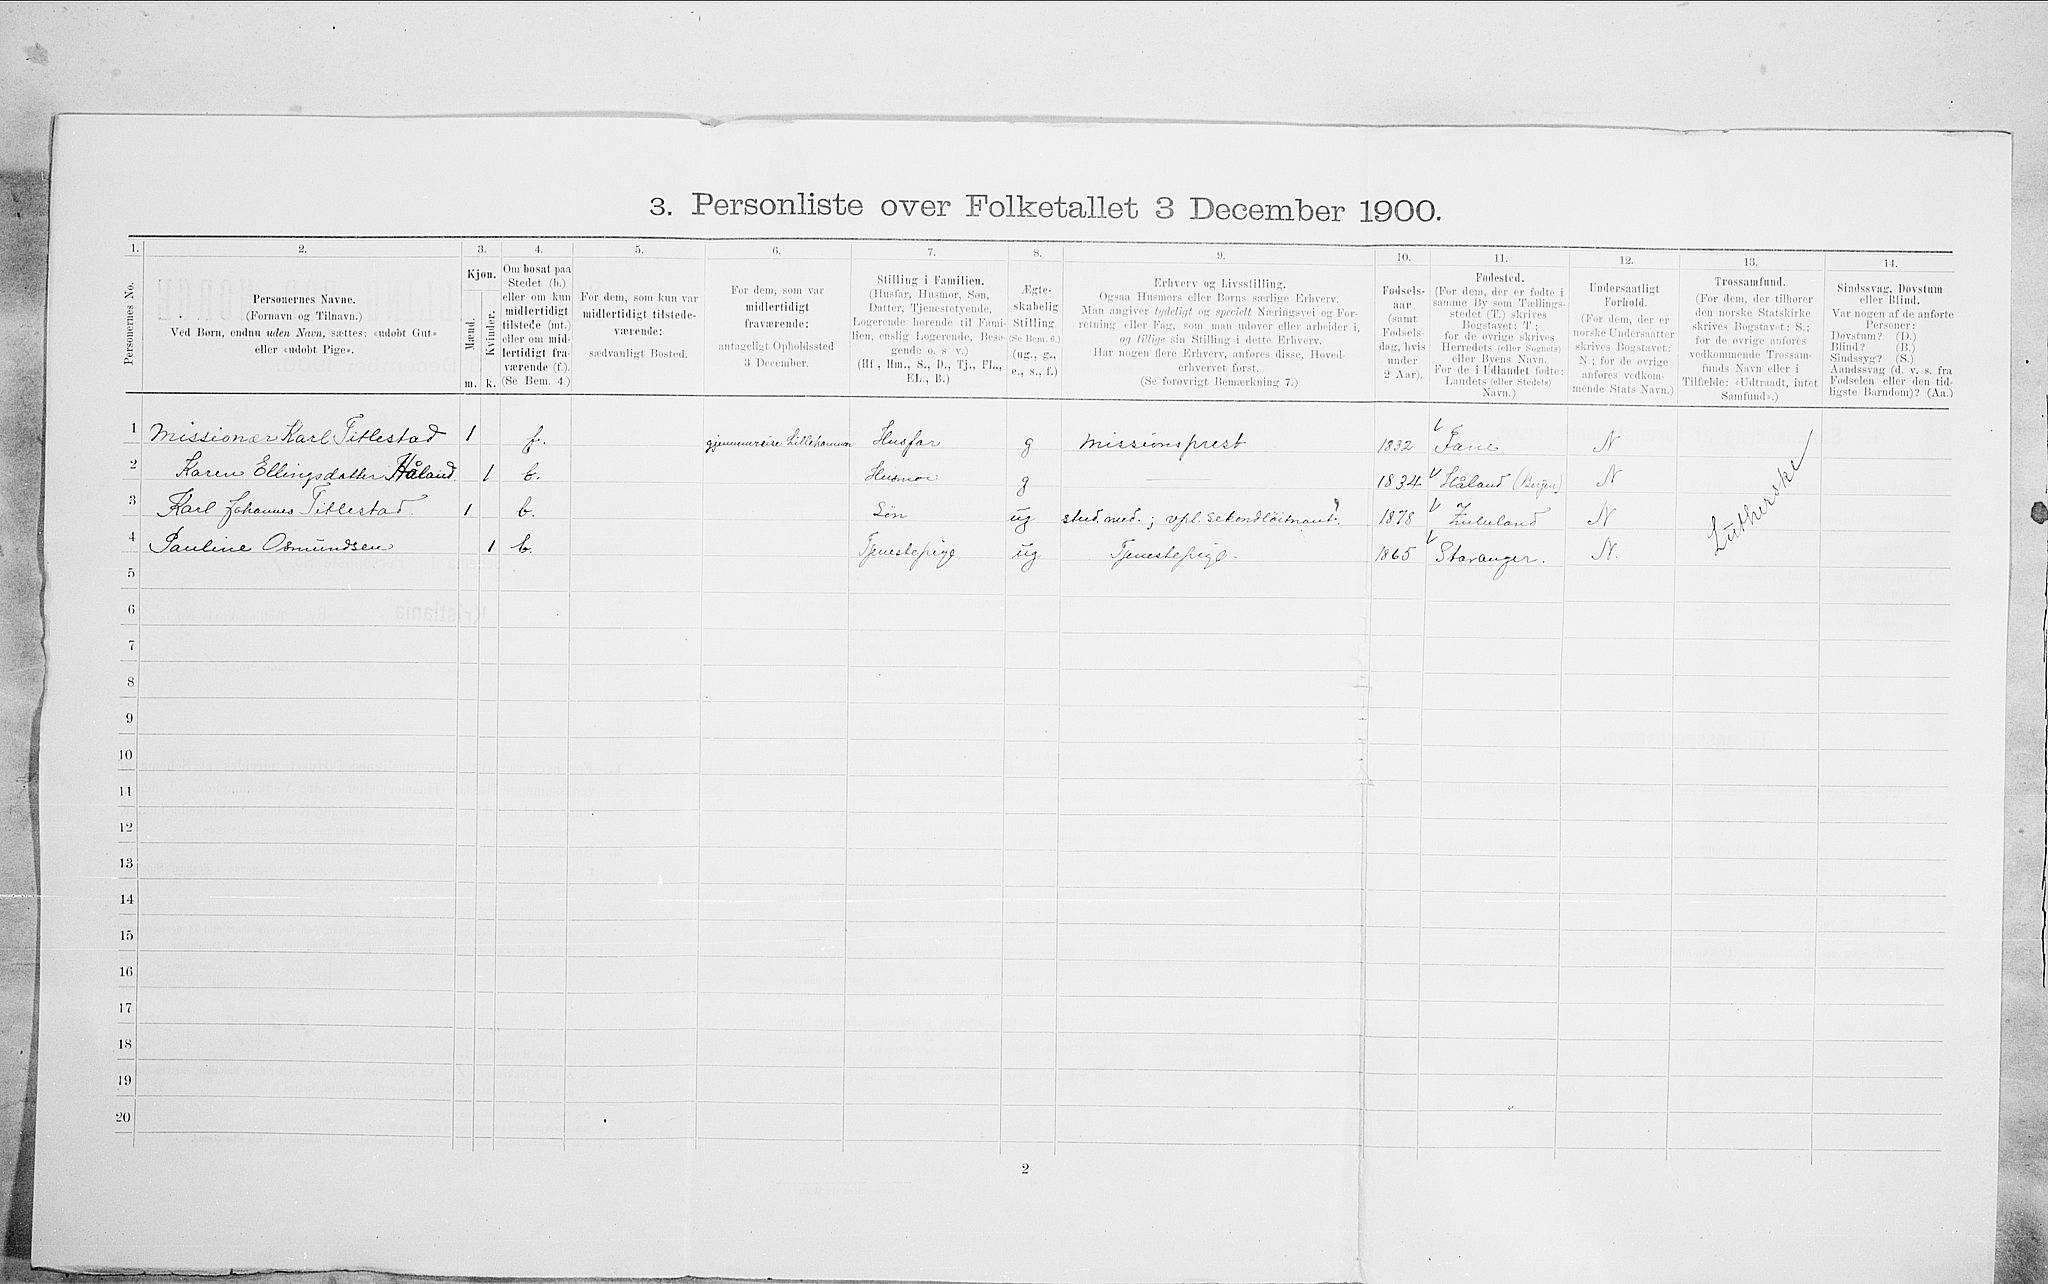 3. Personliste over Folketallet 3 December 1900.
1. 2. 3. 4. 5. 6. 7. 8. 9. 10. 11. 12. 13. 14.
Personernes No.
Personernes Navne.
(Fornavn og Tilnavn.)
Ved Børn, endnu uden Navn, sættes: «udøbt Gut»
eller «udøbt Pige».
Kjøn.
Mænd.
Kvinder.
m. k.
Om bosat paa
Stedet (b.)
eller om kun
midlertidigt
tilstede (mt.)
eller om mid-
lertidigt fra-
værende (f.).
(Se Bem. 4.)
For dem, som kun var
midlertidigt tilstede-
værende:
sædvanligt Bosted.
For dem, som var
midlertidigt
fraværende:
antageligt Opholdssted
3 December.
Stilling i Familien.
(Husfar, Husmor, Søn,
Datter, Tjenestetyende,
Logerende hørende til Fami-
lien, enslig Logerende, Besø-
gende o. s. v.)
(Hf., Hm., S., D., Tj., FL.,
EL., B.)
Ægte-
skabelig
Stilling
(Se Bem. 6.)
(ug., g.,
e., s., f.)
Erhverv og Livsstilling.
Ogsaa Husmors eller Børns særlige Erhverv.
Man angiver tydeligt og specielt Næringsvei og For-
retning eller Fag, som man udøver eller arbeider i,
og tillige sin Stilling i dette Erhverv.
Har nogen flere Erhverv, anføres disse, Hoved-
erhvervet først.
(Se forøvrigt Bemærkning 7.)
Fødsels-
aar
(samt
Fødsels-
dag, hvis
under
2 Aar).
Fødested.
(For dem, der er fødte i
samme By som Tællings-
stedet (T.) skrives
Bogstavet: T;
for de øvrige skrives
Herredets (eller Sognets)
eller Byens Navn.
For de i Udlandet fødte:
Landets (eller Stedets)
Navn.)
Undersaatligt
Forhold.
(For dem, der er
norske Undersaatter
skrives Bogstavet:
N.; for de øvrige
anføres vedkom-
mende Stats Navn.)
Trossamfund.
(For dem, der tilhører
den norske Statskirke
skrives Bogstavet: S.;
for de øvrige anføres
vedkommende Trossam-
funds Navn eller i
Tilfælde: «Udtraadt, intet
Samfund».)
Sindssvag, Døvstum
eller Blind.
Var nogen af de anførte
Personer:
Døvstum? (D.)
Blind? (B.)
Sindssyg? (S.)
Aandssvag (d. v. s. fra
Fødselen eller den tid-
ligste Barndom)? (Aa.)
1 Missionær Karl Titlestad 1 f. gjennemreise Lillehammer Husfar g Missionsprest 1832 Fane N
2 Karen Ellingsdatter Håland 1 b. Husmor g — 1834 Håland (Bergen) N
3 Karl Johannes Titlestad. 1 b. Søn ug stud. med.; vpl. sekondløitnant? 1878 Zululand N
4 Pauline Osmundsen 1 b. Tjenestepige ug Tjenestepige. 1865 Stavanger. N.
Lutherske
5
6
7
8
9
10
11
12
13
14
15
16
17
18
19
20
2